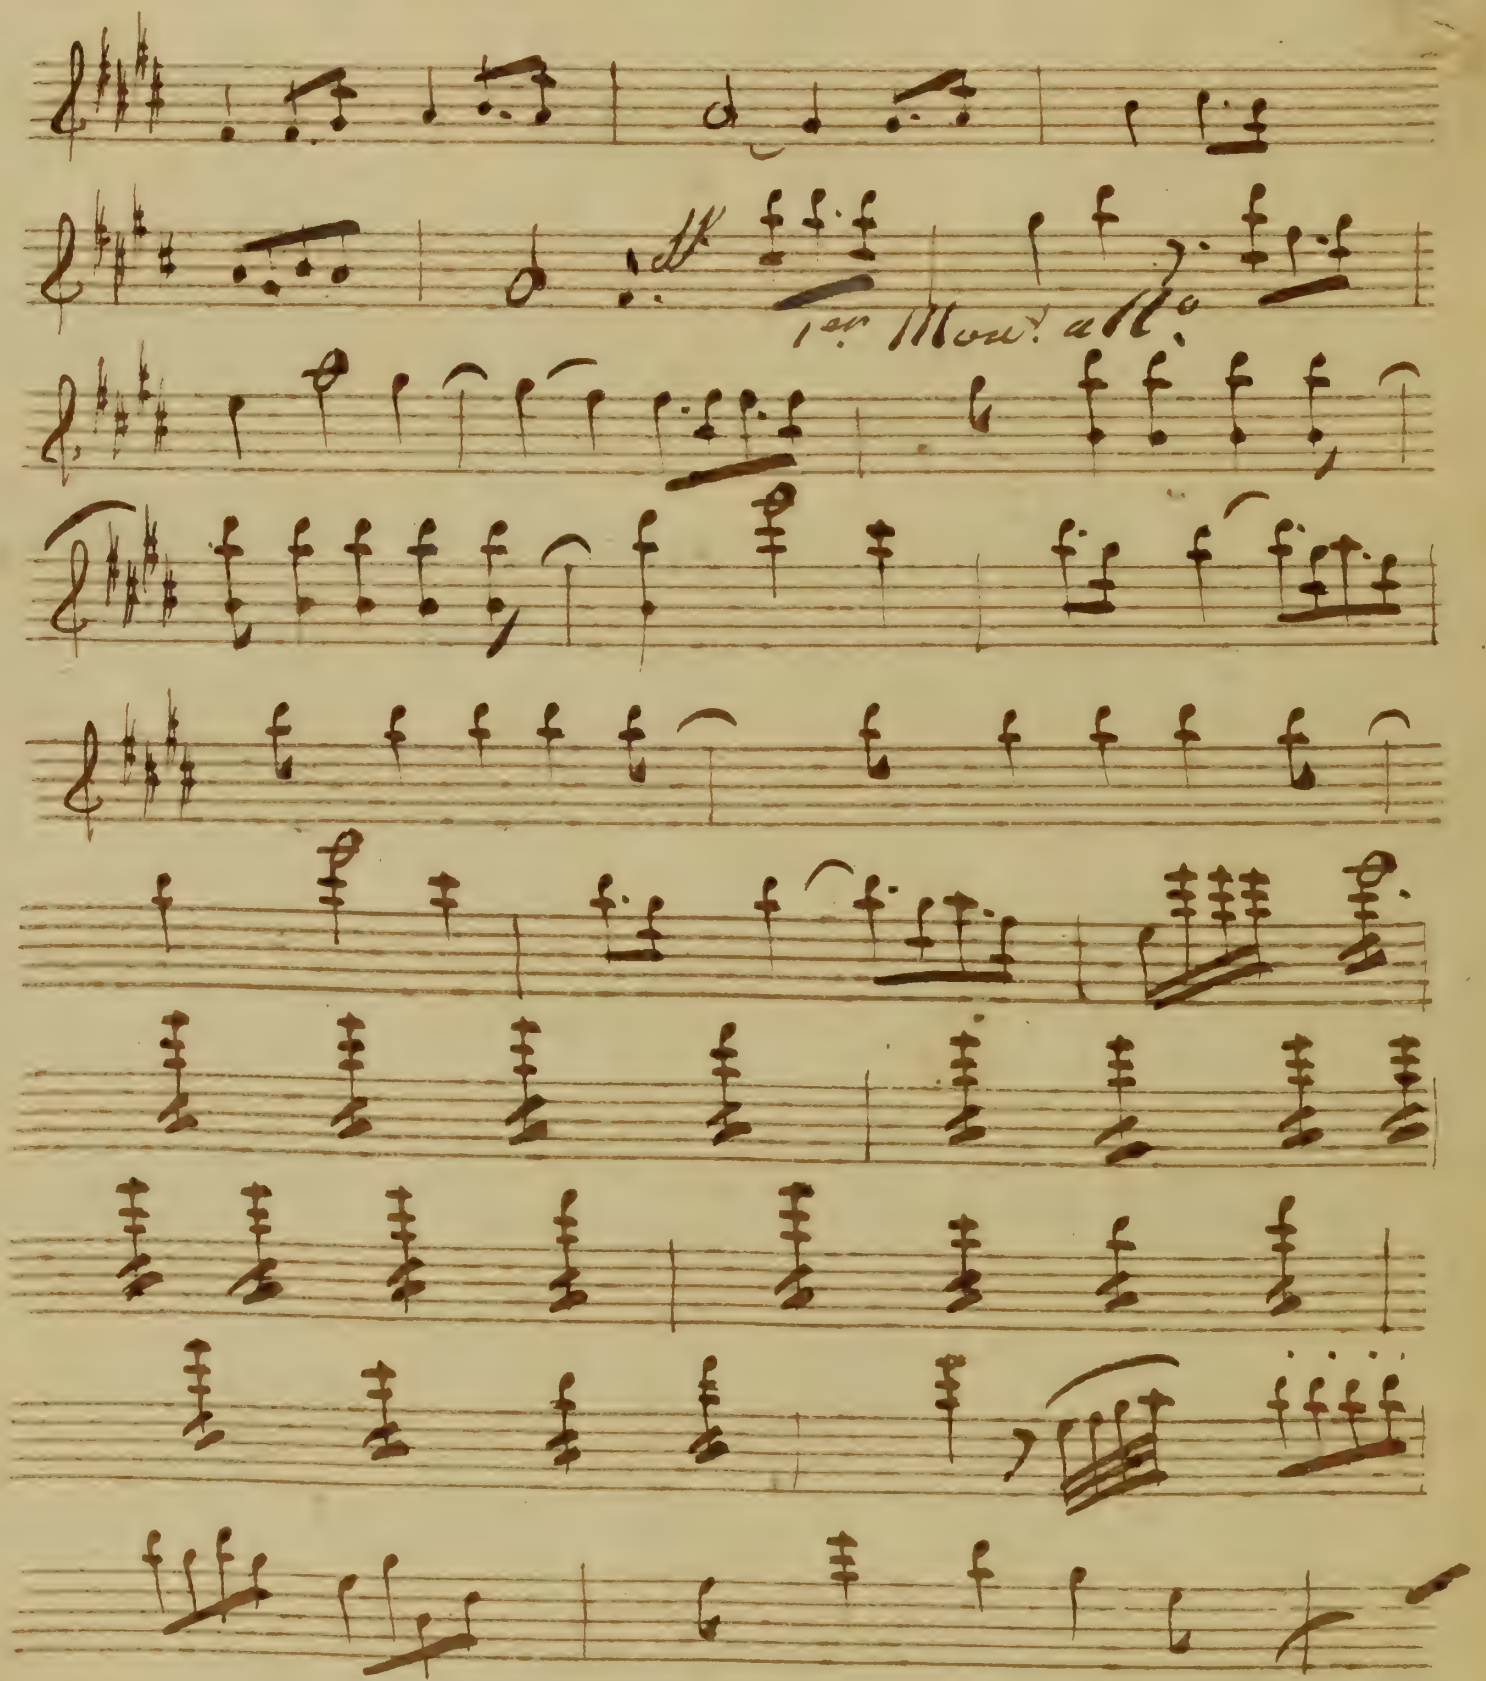 ff
1er Mouv! all°.